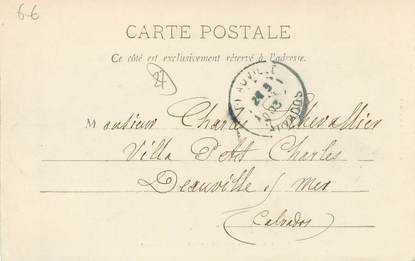 6-€
CARTE POSTALE
Ce côté est exclusivement réservé à l'adresse.
Monsieur Charles Chevallier
Villa Petit Charles
Deauville s/ Mer
(Calvados)